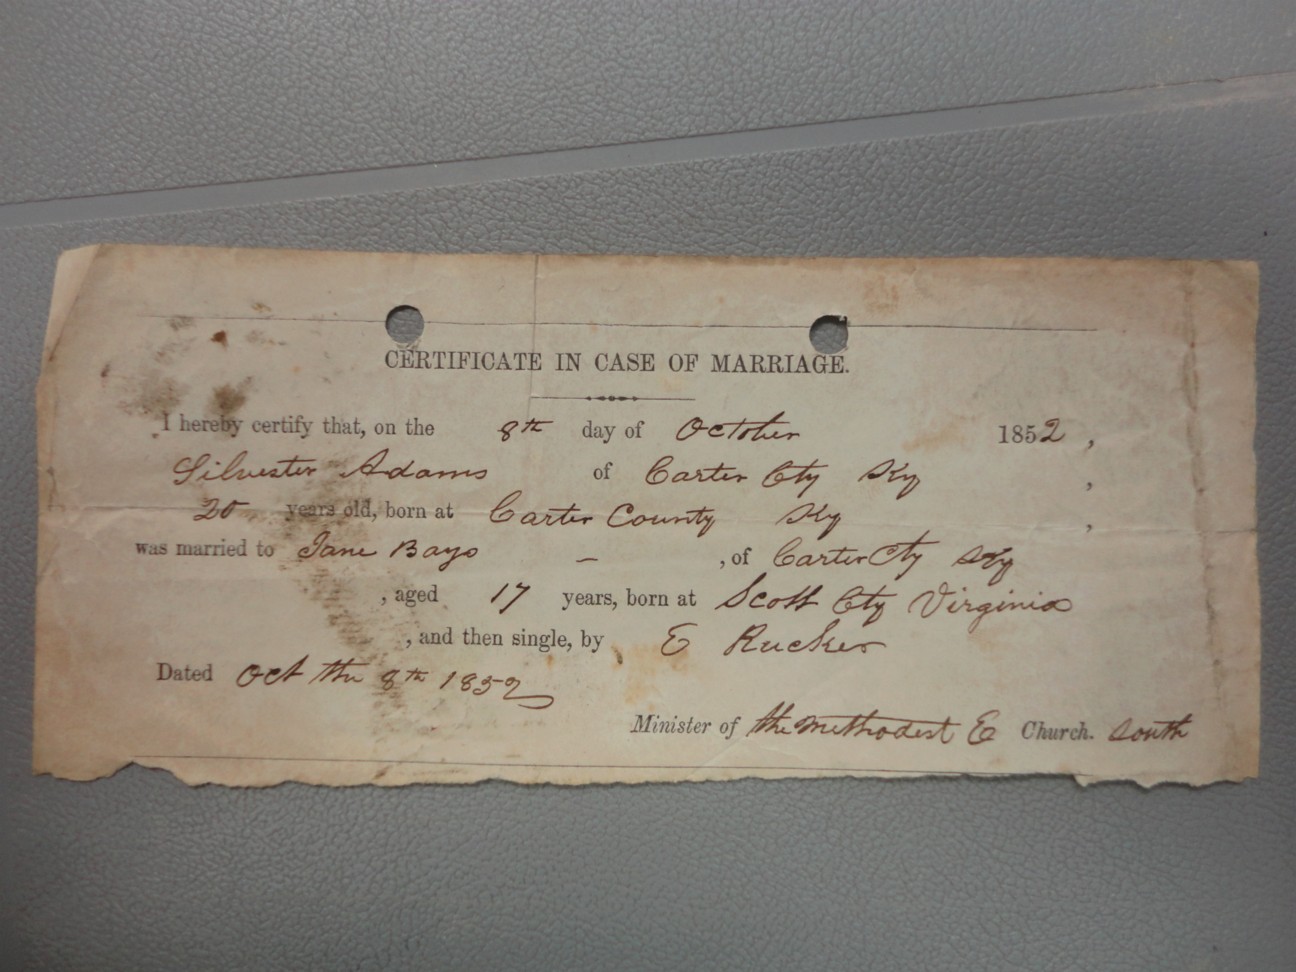 CERTIFICATE IN CASE OF MARRIAGE.
I hereby certify that, on the 8th day of October 1852,
Silvester Adams of Carter Cty Ky,
20 years old, born at Carter County Ky,
was married to Jane Bays – , of Carter Cty Ky
, aged 17 years, born at Scott Cty Virginia
, and then single, by E Rucker
Dated Oct the 8th 1852
Minister of the Methodest E Church. South